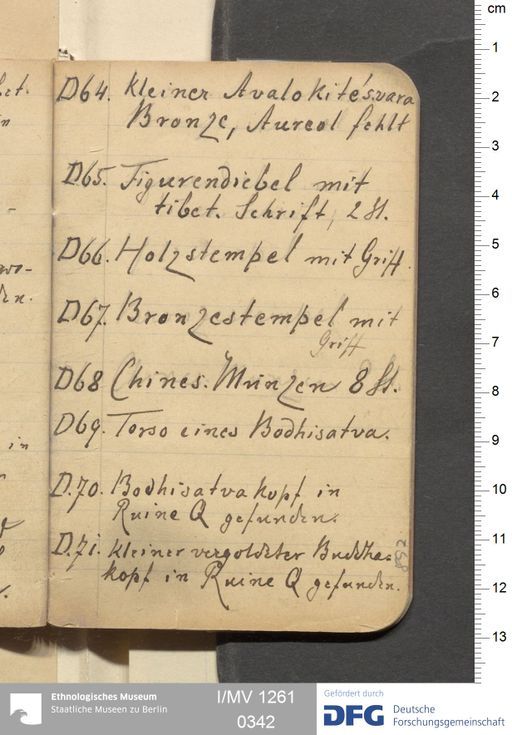 D64. Kleiner Avalokitésvara
Bronze, Aureol fehlt
D65. Figurendiebel mit
tibet. Schrift, 2 St.
D66. Holzstempel mit Griff.
D67. Bronzestempel mit
Griff
D68 Chines. Münzen 8 St.
D69. Torso eines Bodhisatva.
D.70. Bodhisatvakopf in
Ruine Q gefunden.
D.71. Kleiner vergoldeter Buddha-
kopf in Ruine Q gefunden.
cm
1
2
3
4
5
6
7
8
9
10
11
12
13
Ethnologisches Museum
Staatliche Museen zu Berlin
I/MV 1261
0342
Gefördert durch
DFG
Deutsche
Forschungsgemeinschaft